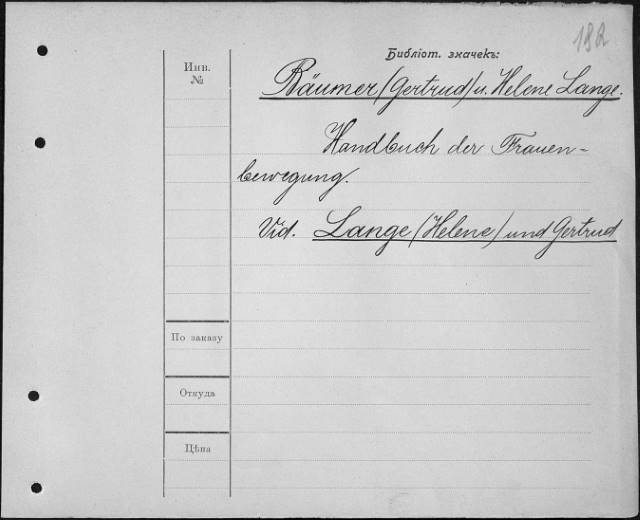 182
Библіот. значекъ:
Инв.
№
Bäumer (Gertrud) u. Helene Lange.
Handbuch der Frauen-
bewegung.
Vid. Lange (Helene) und Gertrud
По заказу
Откуда
Цѣна